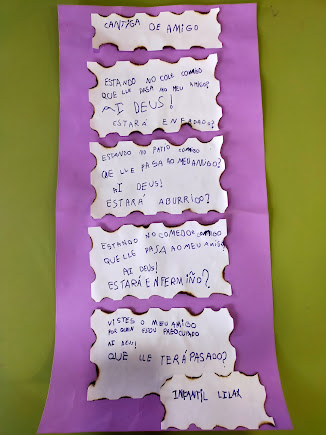 CANTIGA DE AMIGO
ESTANDO NO COLE COMIGO
QUE LLE PASA AO MEU AMIGO?
AI DEUS!
ESTARÁ ENFADADO?
ESTANDO NO PATIO COMIGO
QUE LLE PASA AO MEU AMIGO?
AI DEUS!
ESTARÁ ABURRIDO?
ESTANDO NO COMEDOR COMIGO
QUE LLE PASA AO MEU AMIGO
AI DEUS!
ESTARÁ ENFERMIÑO?
VISTES O MEU AMIGO
POR QUEN ESTOU PREOCUPADO
AI DEUS!
QUE LLE TERÁ PASADO?
INFANTIL LILAS